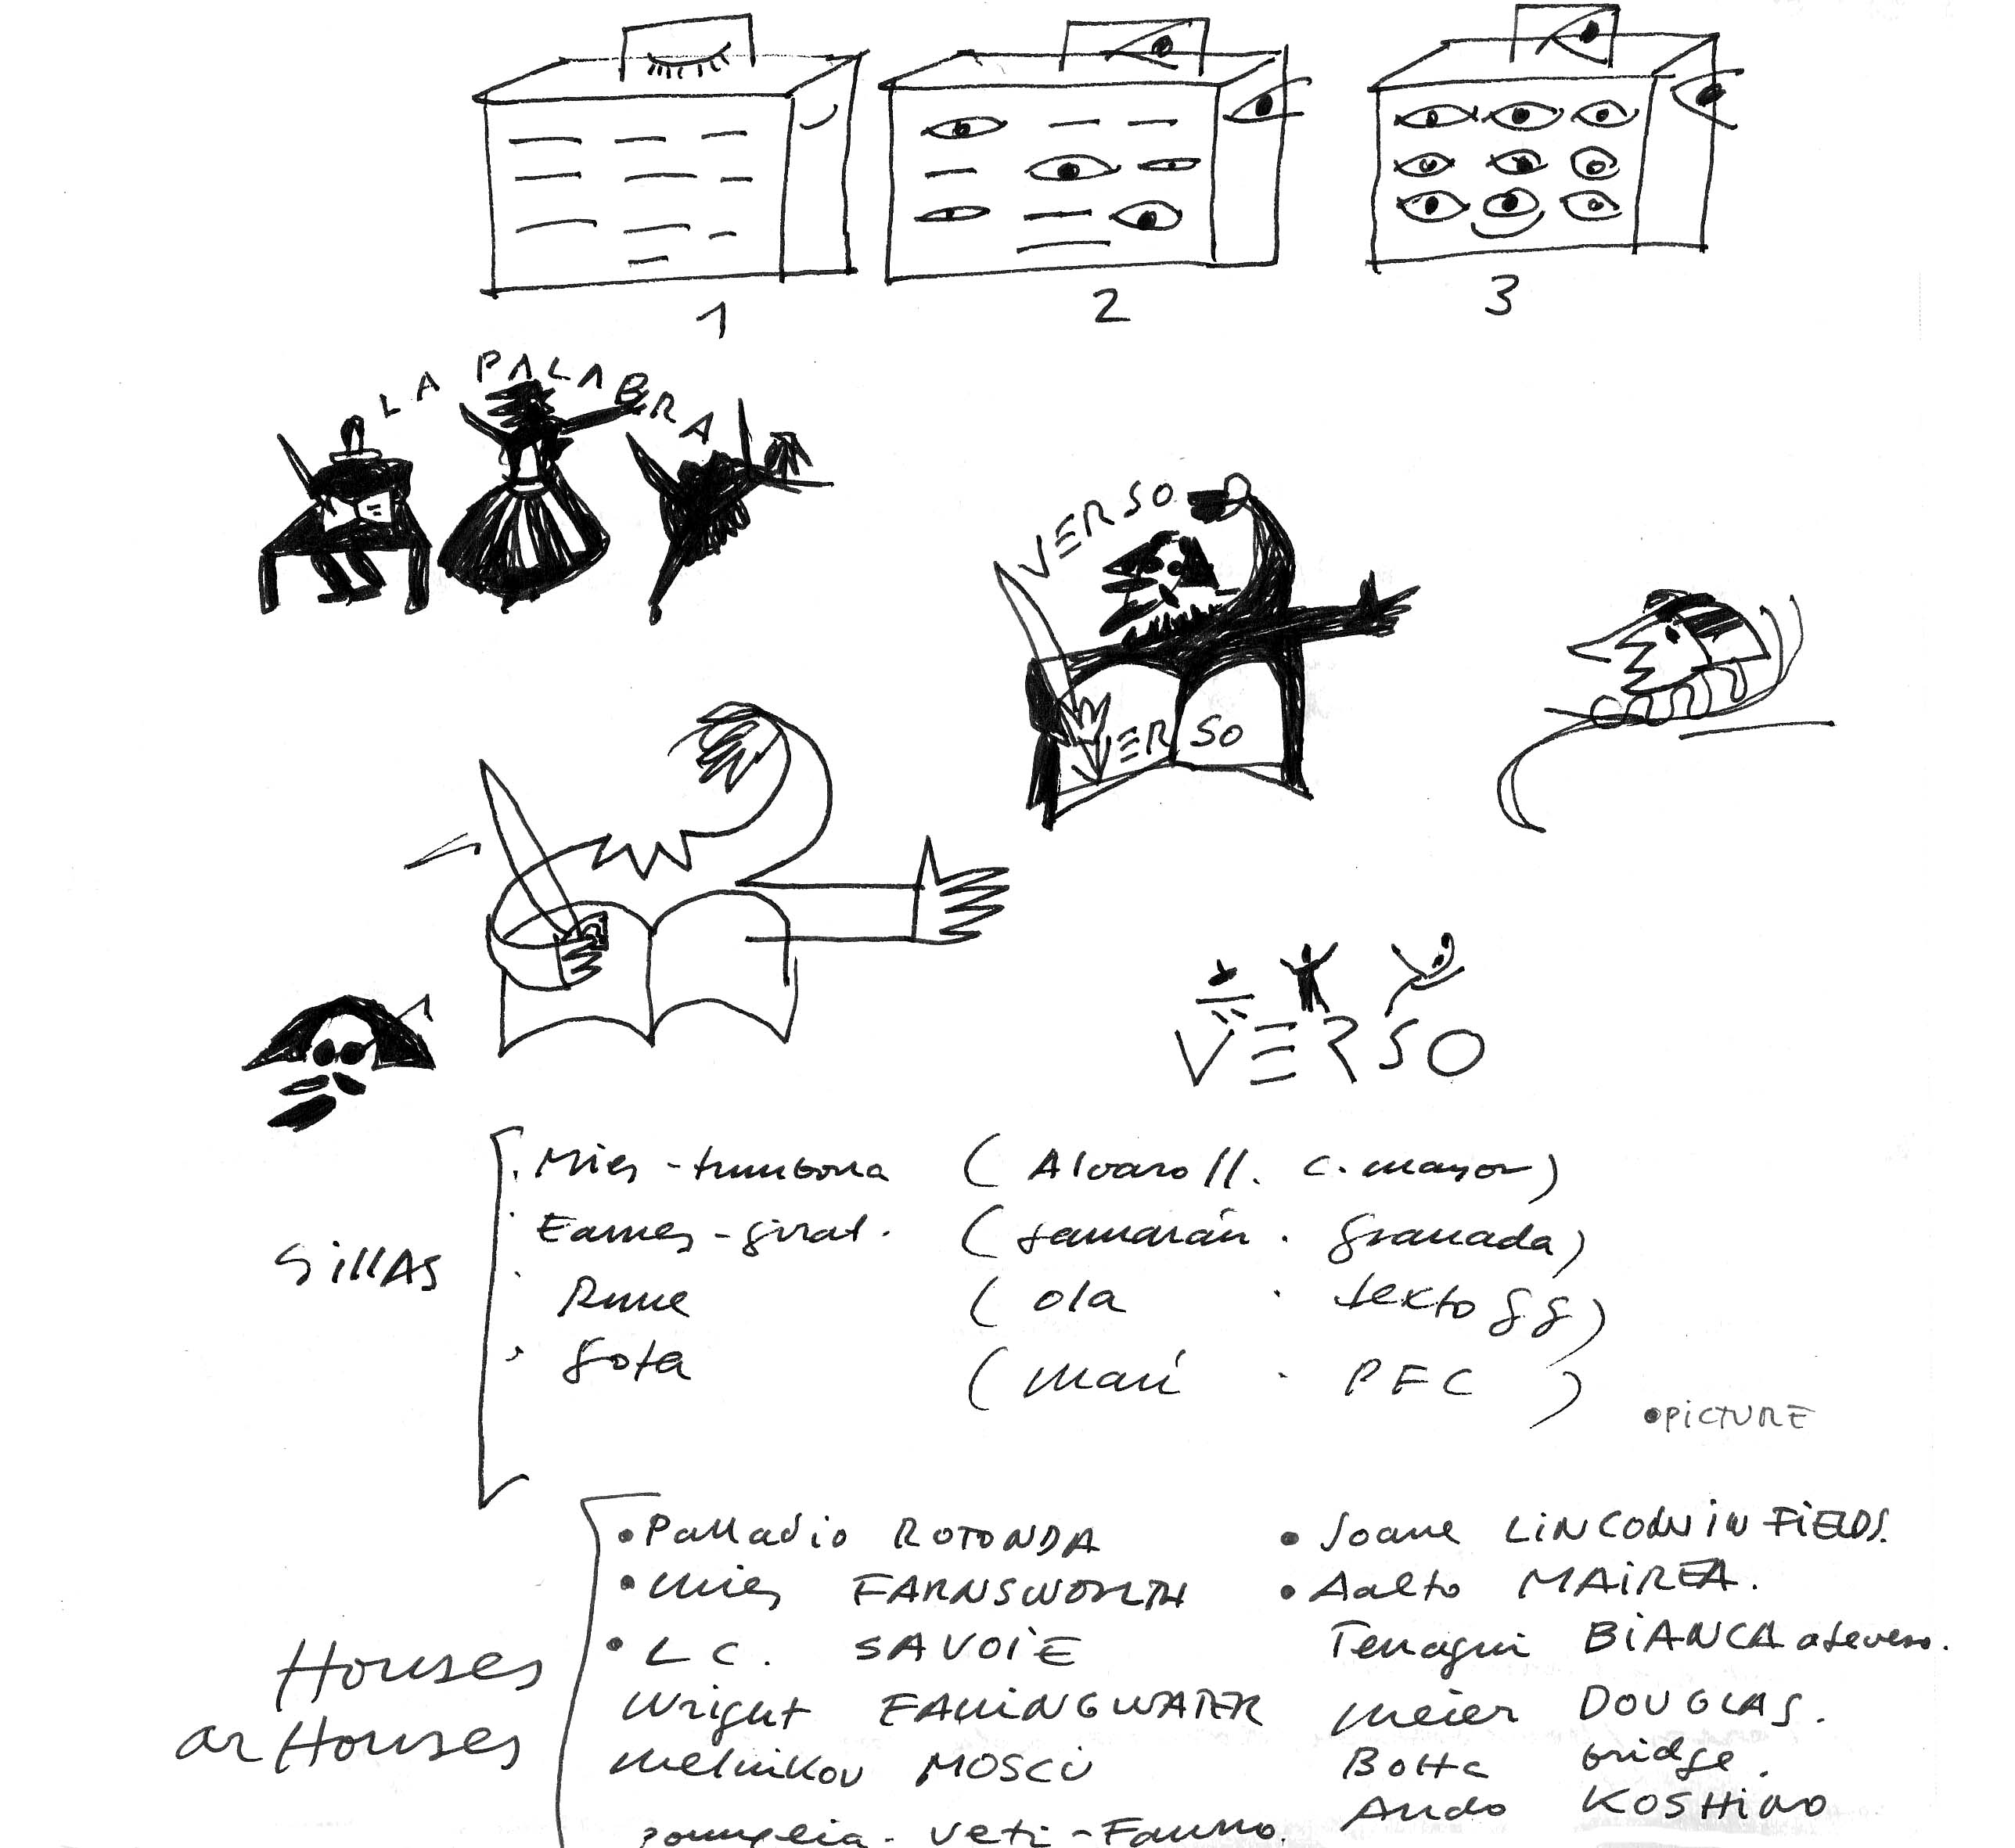 1
2
3
LA PALABRA
VERSO
VERSO
VERSO
SillAS
Mies - tumbona ( Alvaro ll. c. mayor )
Eames - girat. ( tamarán . granada )
( ola . texto gg )
gota ( mari . PFC )
• PICTURE
Houses
ar Houses
• Palladio ROTONDA
• mies FARNSWORTH
• L C. SAVOIE
Wright FALLINGWATER
melnikov MOSCÚ
pompeia - Veti - Fauno.
• Soane LINCOLN IN FIELDS.
• Aalto MAIREA.
Terragni BIANCA a seveso.
meier DOUGLAS.
Botta bridge.
Ando KOSHINO